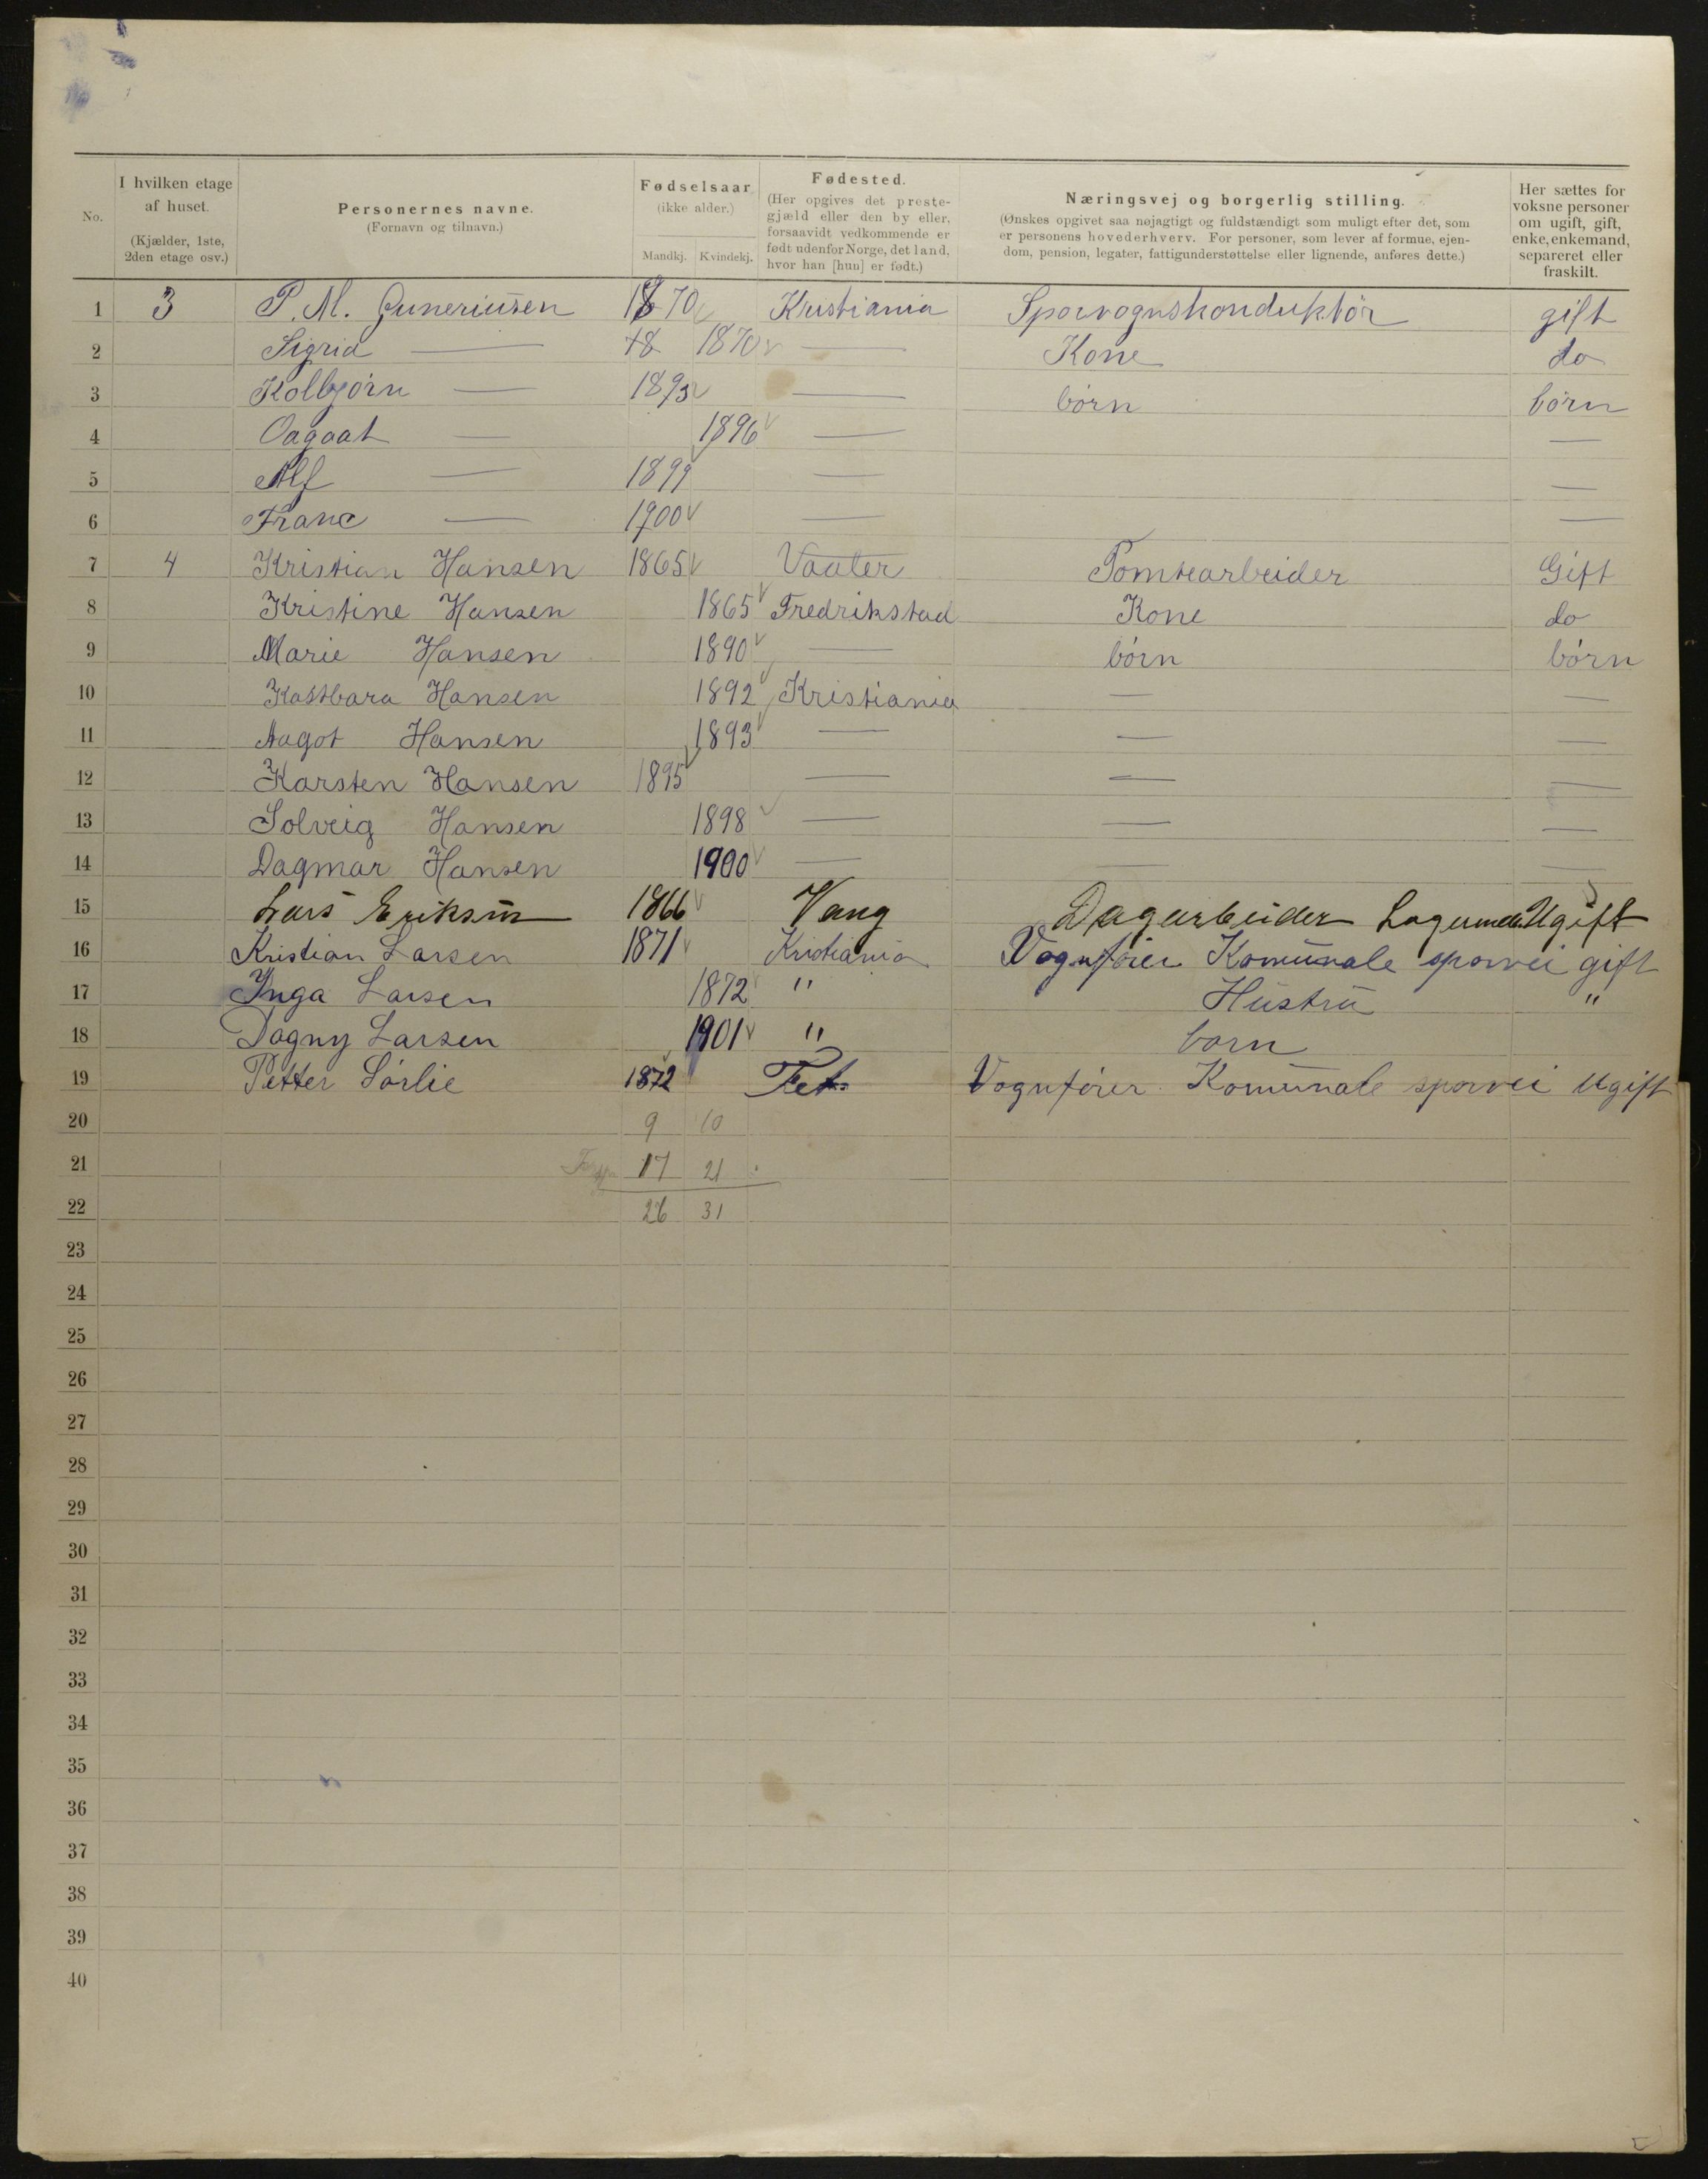 No.
I hvilken etage af huset. (Kjælder, 1ste, 2den etage osv.)
Personernes navne. (Fornavn og tilnavn.)
Fødselsaar (ikke alder.) Mandkj. Kvindekj.
Fødested. (Her opgives det prestegjæld eller den by eller, forsaavidt vedkommende er født udenfor Norge, det land, hvor han [hun] er født.)
Næringsvej og borgerlig stilling. (Ønskes opgivet saa nøjagtigt og fuldstændigt som muligt efter det, som er personens hovederhverv. For personer, som lever af formue, ejendom, pension, legater, fattigunderstøttelse eller lignende, anføres dette.)
Her sættes for voksne personer om ugift, gift, enke, enkemand, separeret eller fraskilt.
1 3 P. M. Guneriusen 1870 Kristiania Sporvognskonduktör gift
2 Sigrid — 18 1870 — Kone do
3 Kolbjörn — 1895 — börn börn
4 Oagaat — 1896 — —
5 Alf — 1899 — —
6 Franc — 1900 — —
7 4 Kristian Hansen 1865 Vaaler Tomtearbeider Gift
8 Kristine Hansen 1865 Fredrikstad Kone do
9 Marie Hansen 1890 — börn börn
10 Kastbara Hansen 1892 Kristiania — —
11 Aagot Hansen 1893 — — —
12 Karsten Hansen 1895 — — —
13 Solveig Hansen 1898 — — —
14 Dagmar Hansen 1900 — — —
15 Lars Eriksen 1866 Vang Dagarbeider Ugift
16 Kristian Larsen 1871 Kristiania Vognförer Komunale sporvei gift
17 Inga Larsen 1872 " Hustru "
18 Dagny Larsen 1901 " barn
19 Petter Sörlie 1872 Fet Vognförer Komunale sporvei Ugift
20 9 10
21 17 21
22 26 31
23
24
25
26
27
28
29
30
31
32
33
34
35
36
37
38
39
40